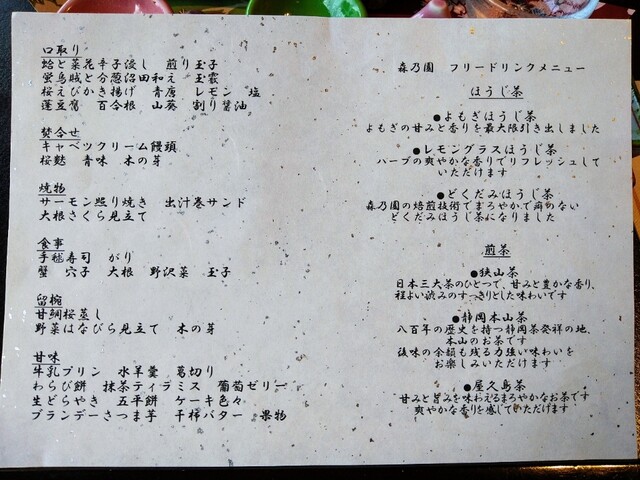 口取り
蛤と菜花辛子浸し 煎り玉子
蛍烏賊と分葱沼田和え 玉霰
桜えびかき揚げ 青唐 レモン 塩
蓬豆腐 百合根 山葵 割り醤油
焚合せ
キャベツクリーム饅頭
桜麩 青味 木の芽
焼物
サーモン照り焼き 出汁巻サンド
大根さくら見立て
食事
手毬寿司 がり
蟹 穴子 大根 野沢菜 玉子
留椀
甘鯛桜蒸し
野菜はなびら見立て 木の芽
甘味
牛乳プリン 水羊羹 葛切り
わらび餅 抹茶ティラミス 葡萄ゼリー
生どらやき 五平餅 ケーキ色々
ブランデーさつま芋 干柿バター 果物
森乃園 フリードリンクメニュー
ほうじ茶
●よもぎほうじ茶
よもぎの甘みと香りを最大限引き出しました
●レモングラスほうじ茶
ハーブの爽やかな香りでリフレッシュして
いただけます
●どくだみほうじ茶
森乃園の焙煎技術でまろやかで癖のない
どくだみほうじ茶になりました
煎茶
●狭山茶
日本三大茶のひとつで、甘みと豊かな香り、
程よい渋みのすっきりとした味わいです
●静岡本山茶
八百年の歴史を持つ静岡茶発祥の地、
本山のお茶です
後味の余韻も残る力強い味わいを
お楽しみいただけます
●屋久島茶
甘みと旨みを味わえるまろやかなお茶です
爽やかな香りを感じていただけます